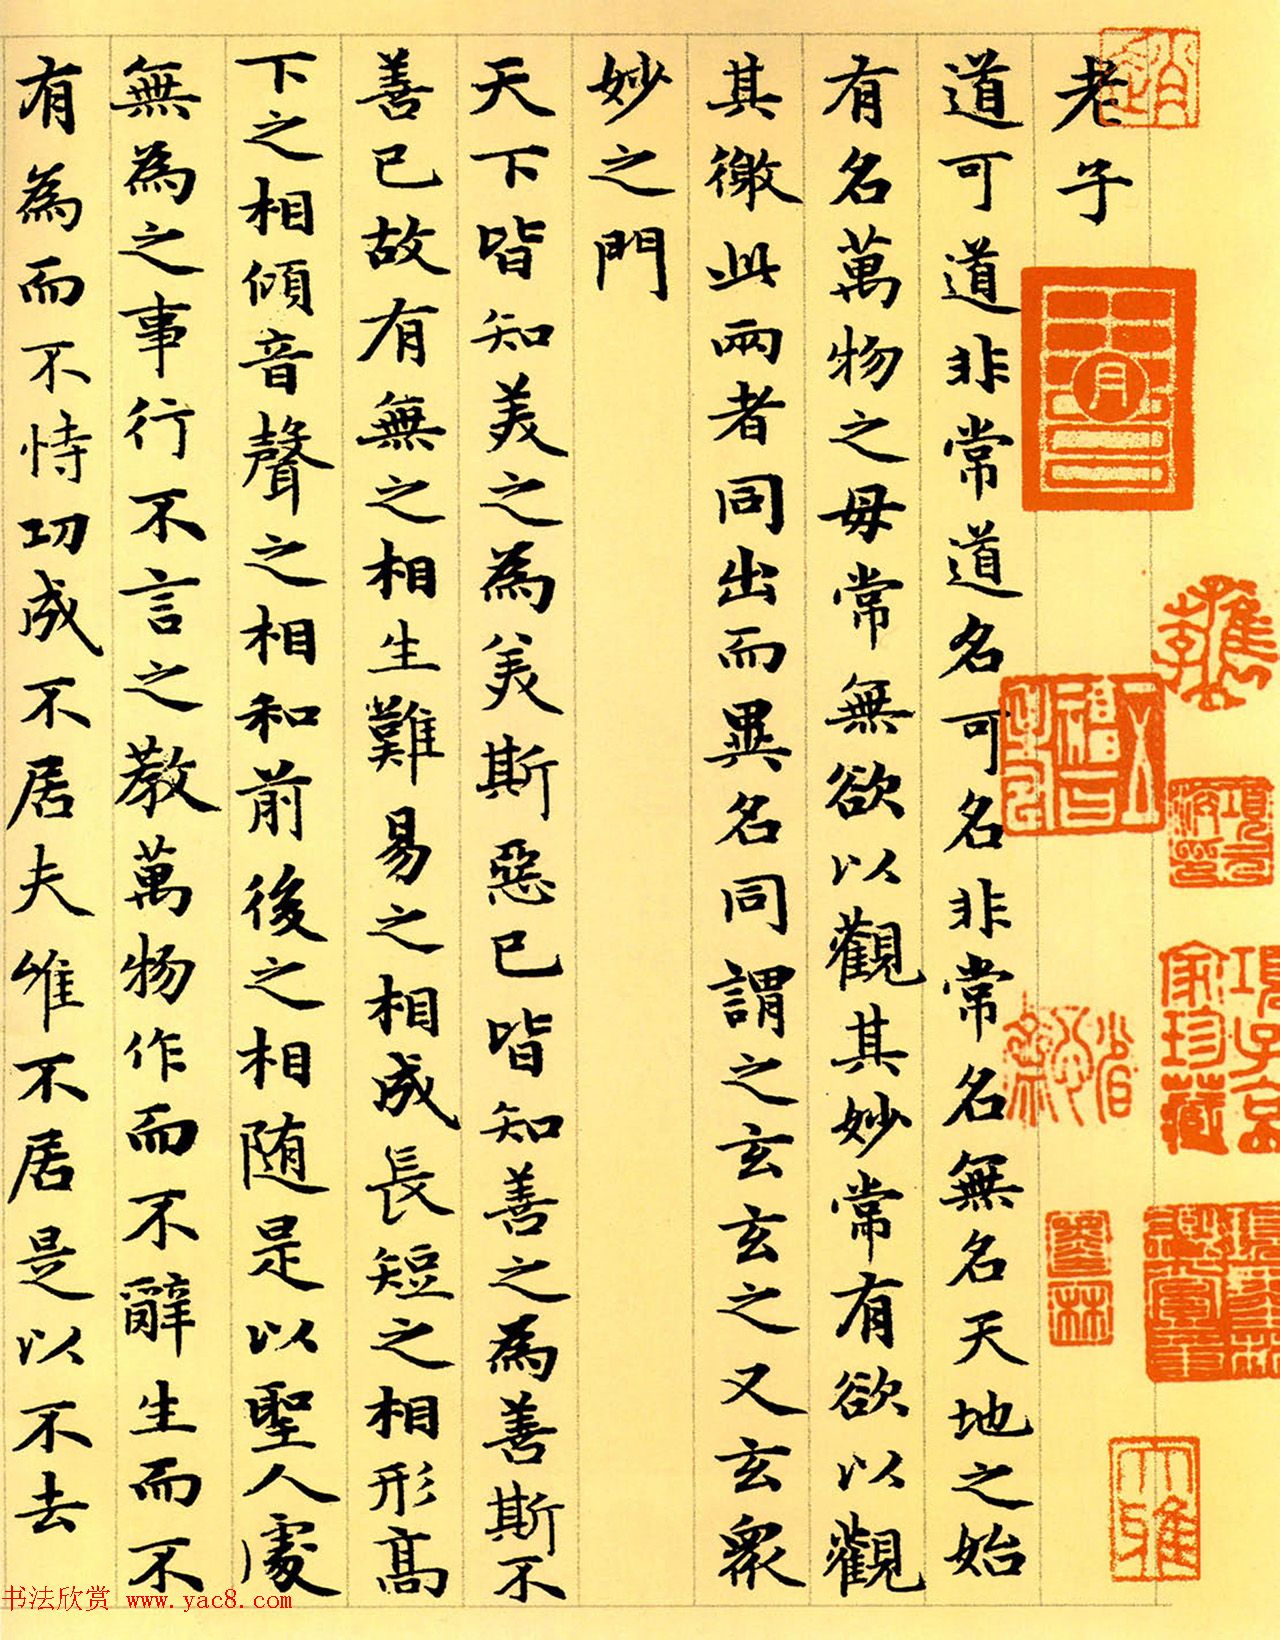 老子
道可道非常道名可名非常名無名天地之始
有名萬物之母常無欲以觀其妙常有欲以觀
其徼此兩者同出而異名同謂之玄玄之又玄衆
妙之門
天下皆知美之為美斯惡已皆知善之為善斯不
善已故有無之相生難易之相成長短之相形高
下之相傾音聲之相和前後之相随是以聖人處
無為之事行不言之教萬物作而不辭生而不
有為而不恃功成不居夫惟不居是以不去
項子京
家珍藏
墨林
书法欣赏 www.yac8.com